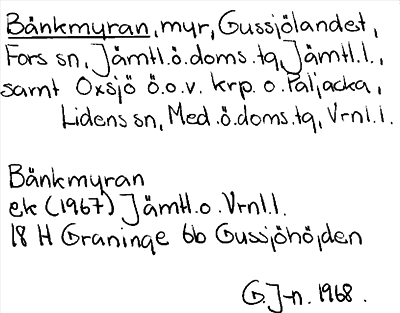 Bånkmyran, myr, Gussjölandet,
Fors sn, Jämtl.ö.doms.tg, Jämtl.l.,
samt Oxsjö ö.o.v. krp. o. Paljacka,
Lidens sn, Med.ö.doms.tg, Vrnl.l.
Bånkmyran
ek (1967) Jämtl.o. Vrnl.l.
18 H Graninge 6b Gussjöhöjden
G.J-n. 1968.